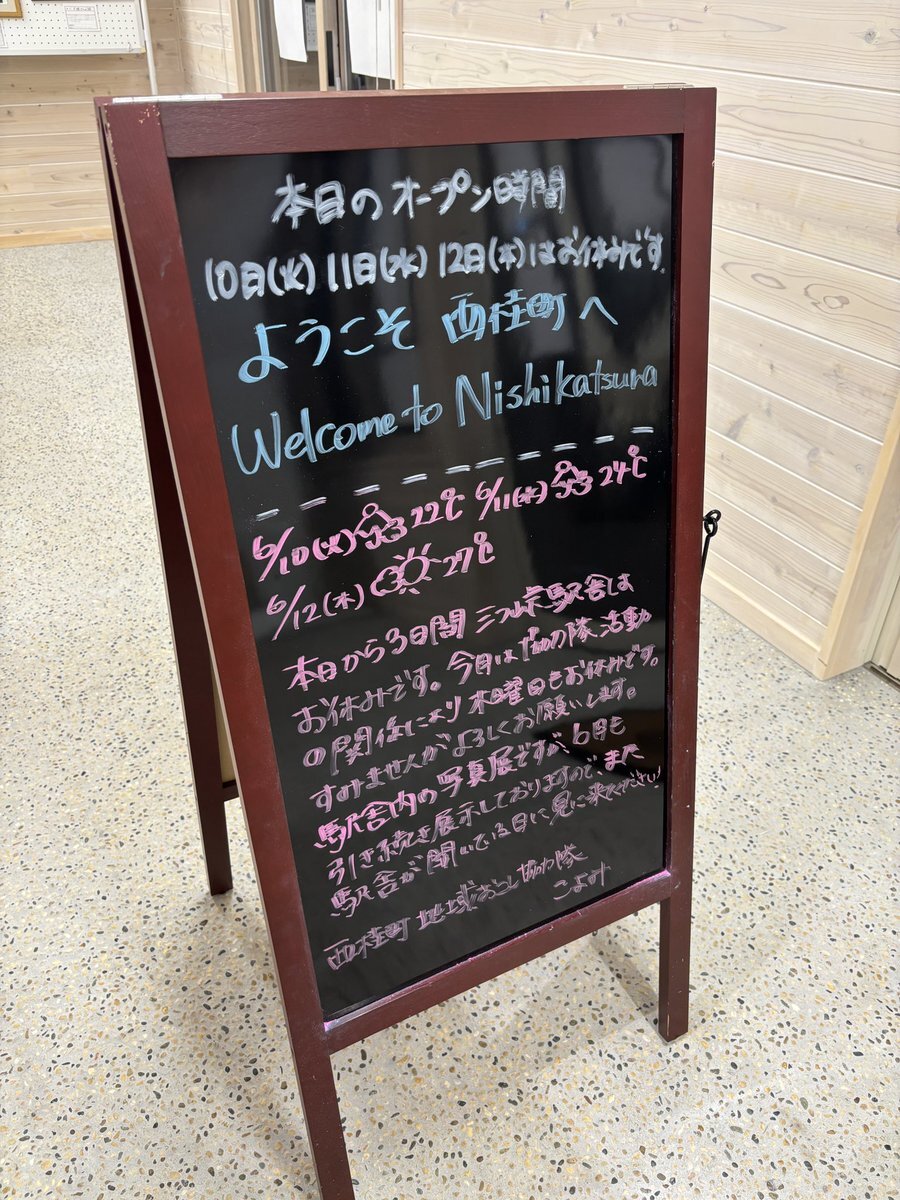 本日のオープン時間
10日(火) 11日(水) 12日(木)はお休みです
ようこそ 西桂町へ
Welcome to Nishikatsura
6/10(火) 22℃ 6/11(水) 24℃
6/12(木) 27℃
本日から3日間 三つ峠駅舎は
お休みです。今月は協力隊活動
の関係により木曜日もお休みです。
すみませんがよろしくお願いします。
駅舎内の写真展ですが、6日も
引き続き展示しておりますので、また
駅舎が開いている日に見に来てください!
西桂町 地域おこし協力隊
こよみ